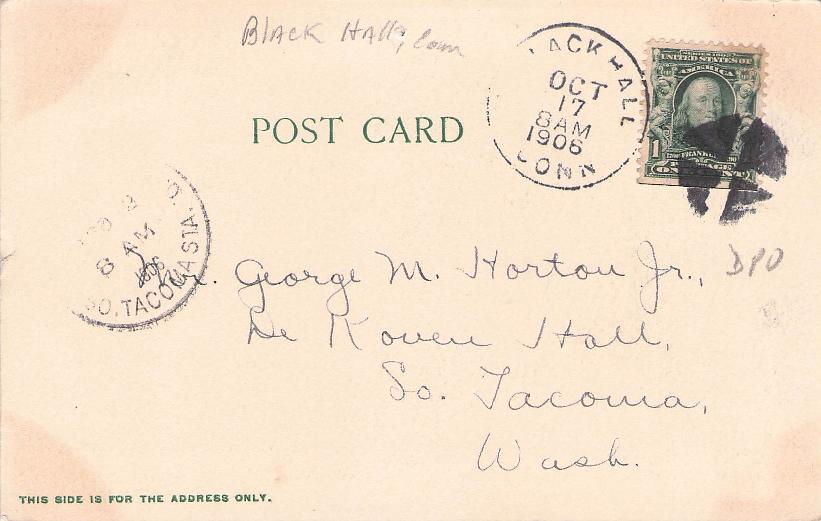 BlACK HAll, Conn
LACK HALL
OCT
17
8 AM
1906
CONN
SERIES 1902
UNITED STATES OF
AMERICA
1 FRANKLIN
POSTAGE
ONE CENT
POST CARD
8 AM
1906
SO. TACOMA STA.
George M. Horton Jr.,
DPO
De Koven Hall,
So. Tacoma,
Wash.
THIS SIDE IS FOR THE ADDRESS ONLY.